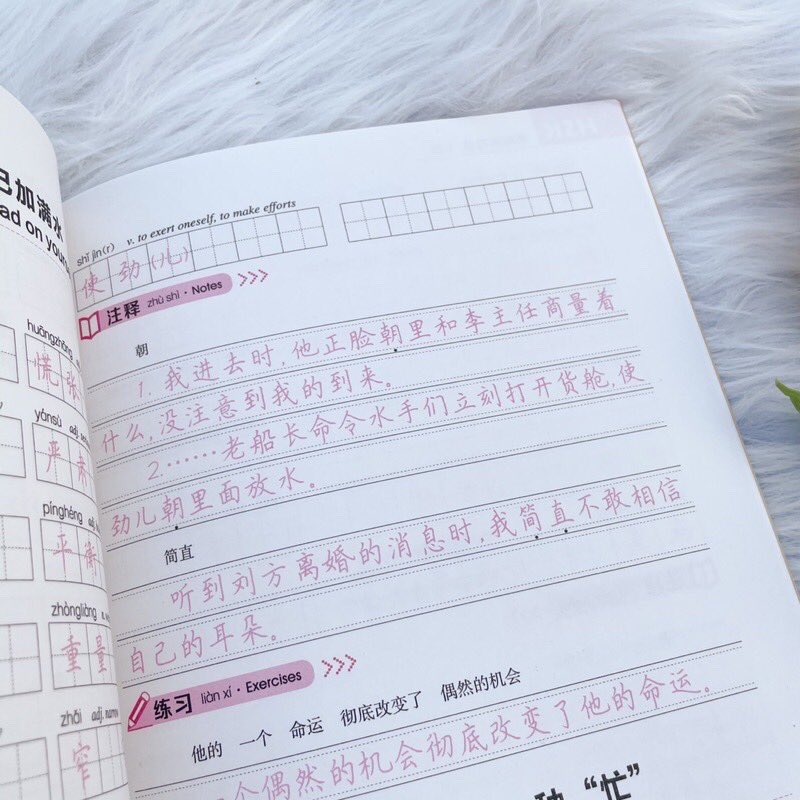 巴加满水
ad on your
huāngzhāng
慌张
yánsù adj. se
严肃
pínghéng adj.
平衡
zhòngliàng n.
重量
zhǎi adj. narrow
窄
shǐ jìn(r) v. to exert oneself, to make efforts
使劲(儿)
注释 zhù shì · Notes
朝
1. 我进去时，他正脸朝里和李主任商量着
什么，没注意到我的到来。
2……老船长命令水手们立刻打开货舱，使
劲儿朝里面放水。
简直
听到刘方离婚的消息时，我简直不敢相信
自己的耳朵。
练习 liàn xí · Exercises
他的 一个 命运 彻底改变了 偶然的机会
个偶然的机会彻底改变了他的命运。
“忙”